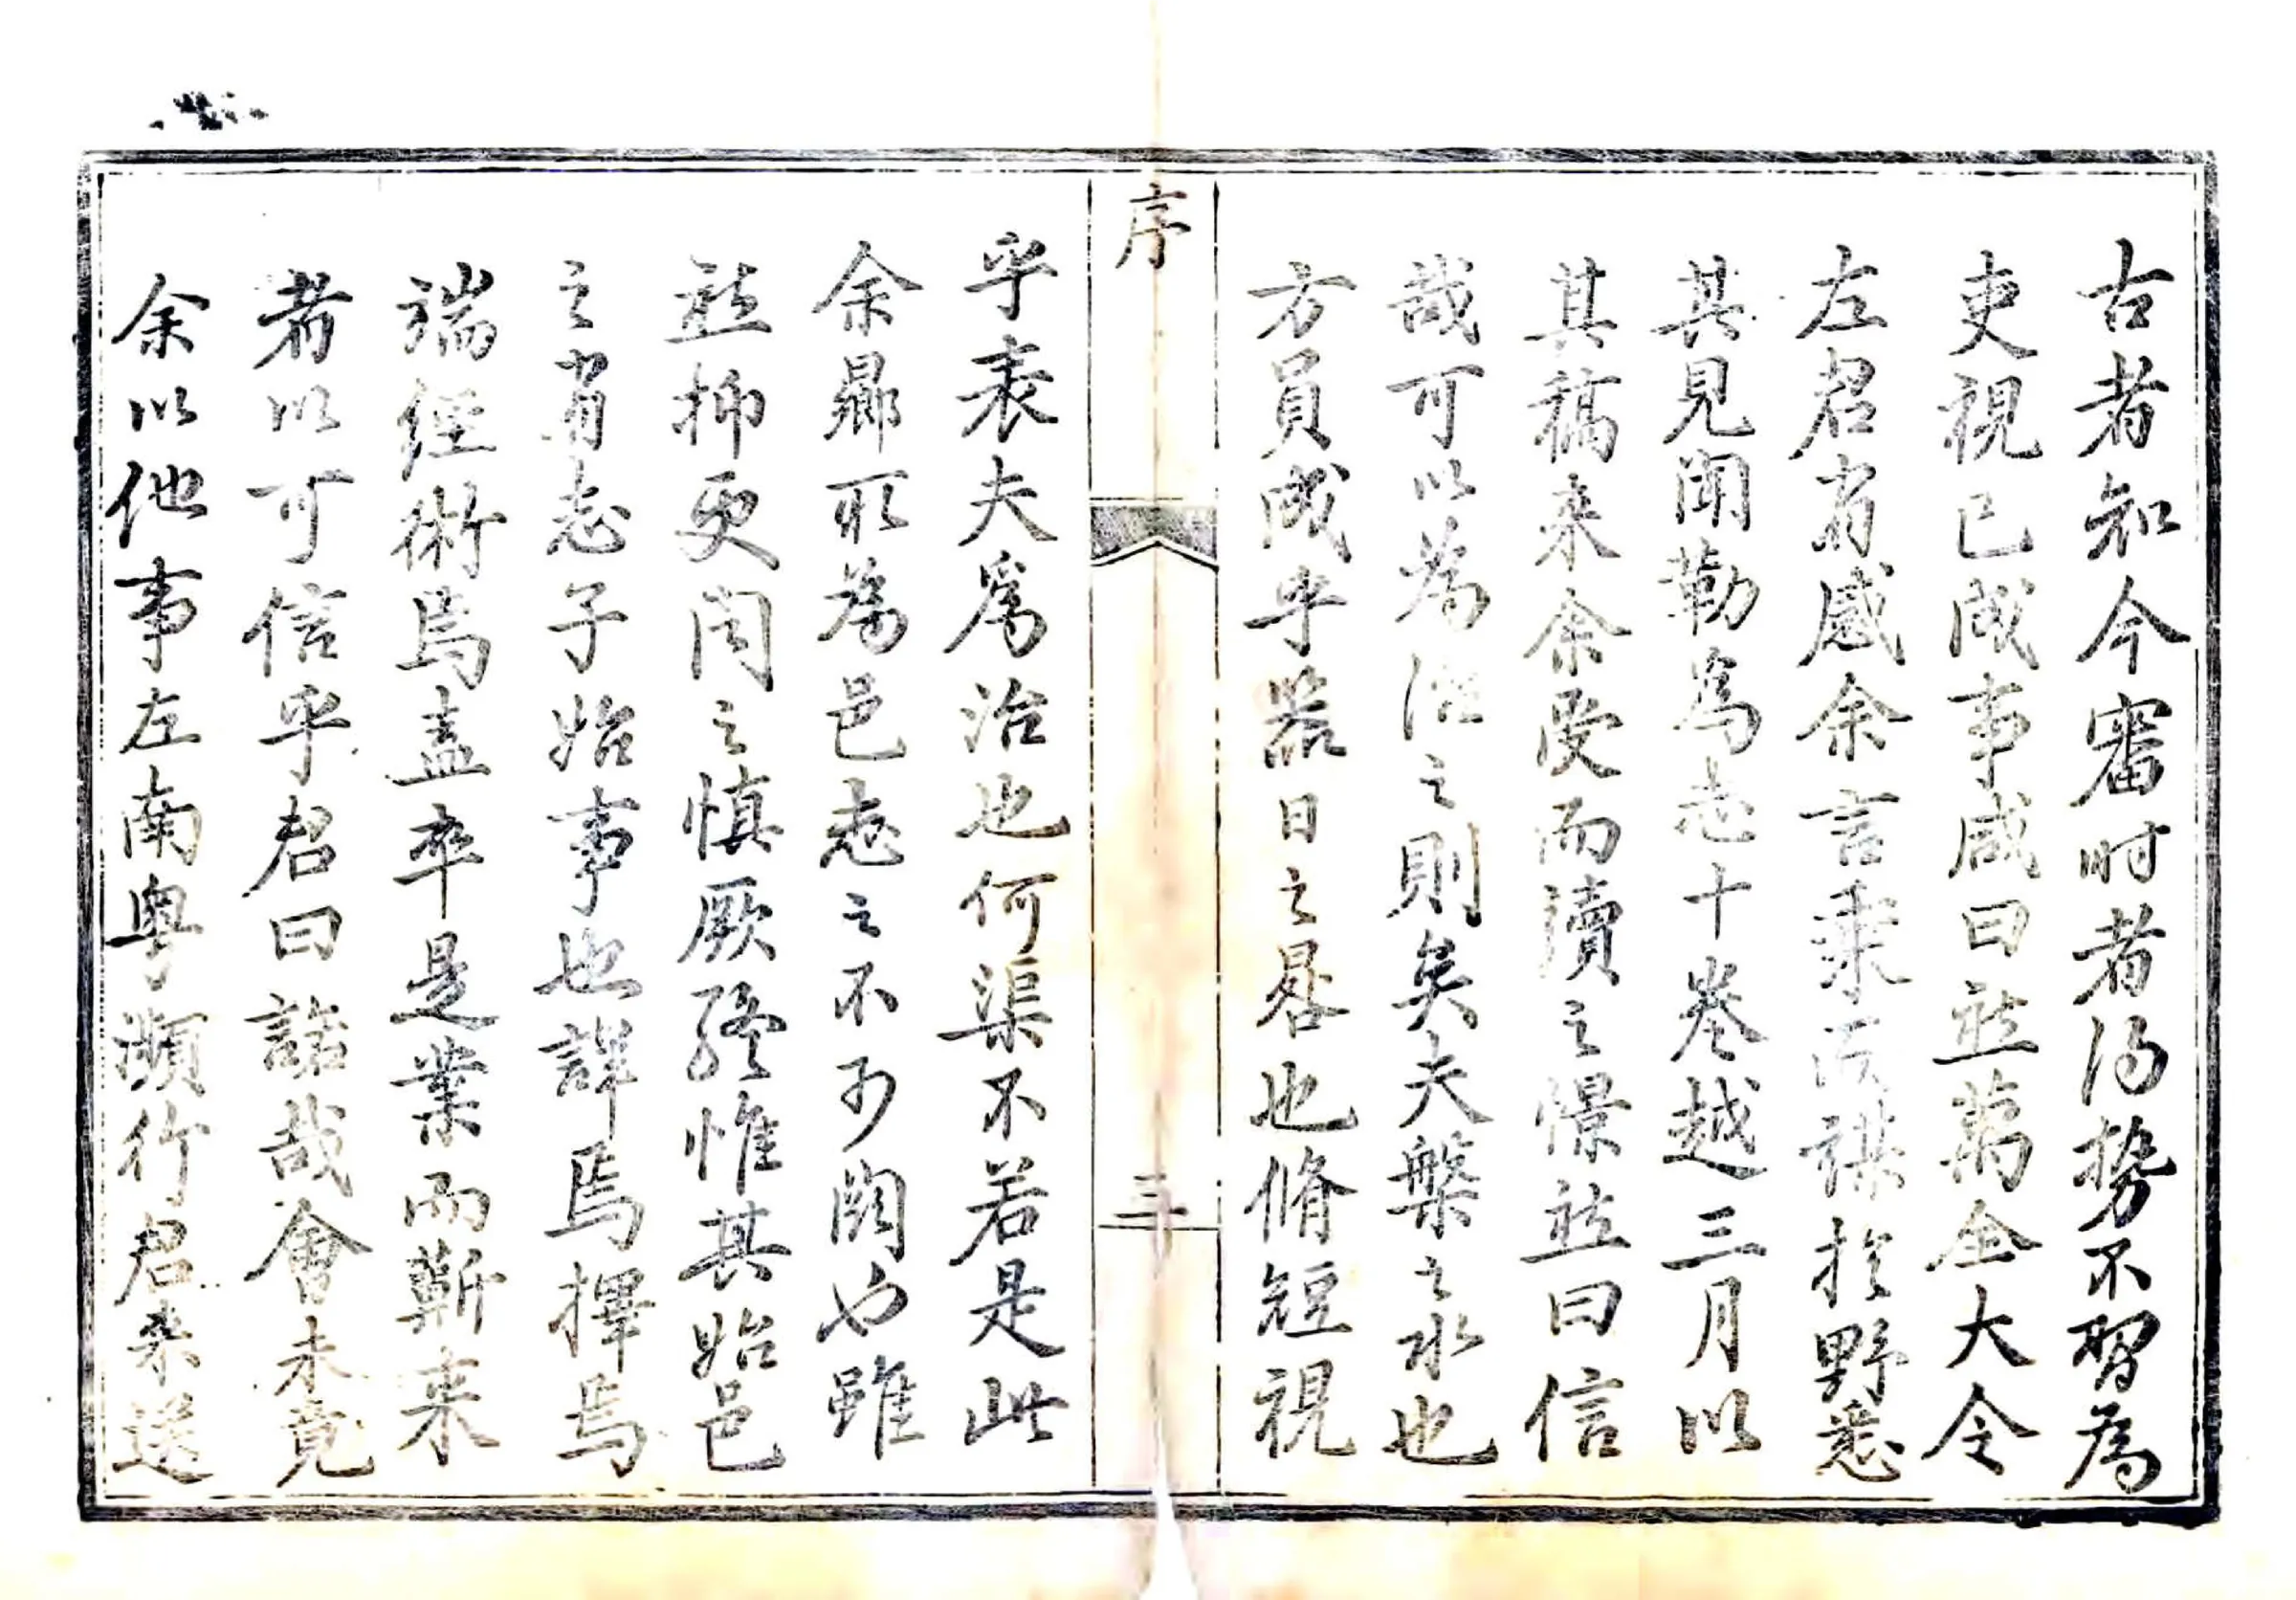 古者知今審時者得勢不習為
吏視已成事咸曰然萬全大令
左君有感余言秉 謀於野悉
其見聞勒為志十卷越三月以
其稿來余受而讀之憬然曰信
哉可以為治之則矣夫槃之水也
方員成乎器日之晷也脩短視
序
三
乎表夫為治也何渠不若是此
余鄭所為邑志之不可闕也雖
然抑更聞之慎厥終惟其始邑
之有志子始事也詳焉擇焉
端經術焉盍卒是業而蘄來
者以可信乎君曰諾哉會未竟
余以他事左南粵瀕行君來送